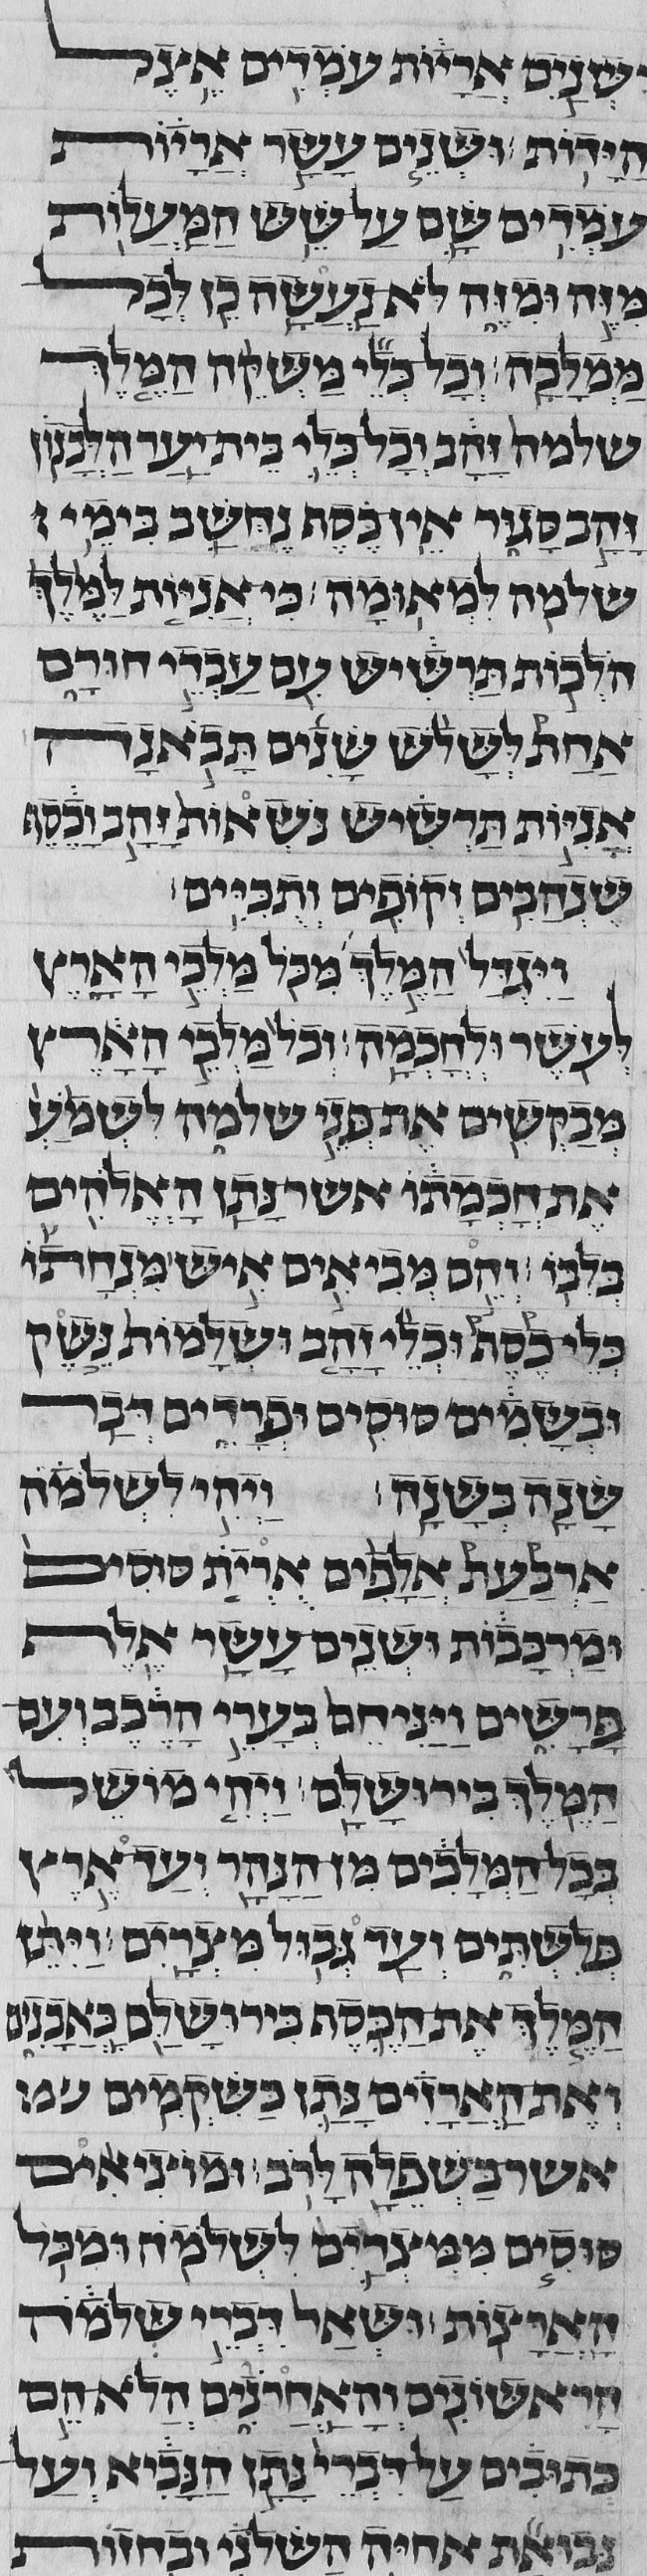 ושנים אריות עמדים אצל
הידות׃ ושנים עשר אריות
עמדים שם על שש המעלות
מזה ומזה לא נעשה כן לכל
ממלכה׃ וכל כלי משקה המלך
שלמה זהב וכל כלי בית יער הלבנון
זהב סגור אין כסף נחשב בימי
שלמה למאומה׃ כי אניות למלך
הלכות תרשיש עם עבדי חורם
אחת לשלש שנים תבאנה
אניות תרשיש נשאות זהב וכסף
שנהבים וקופים ותכיים׃
ויגדל המלך מכל מלכי הארץ
לעשר ולחכמה׃ וכל מלכי הארץ
מבקשים את פני שלמה לשמע
את חכמתו אשר נתן האלהים
בלבו׃ והם מביאים איש מנחתו
כלי כסף וכלי זהב ושלמות נשק
ובשמים סוסים ופרדים דבר
שנה בשנה׃ ויהי לשלמה
ארבעת אלפים אריות סוסים
ומרכבות ושנים עשר אלף
פרשים ויניחם בערי הרכב ועם
המלך בירושלם׃ ויהי מושל
בכל המלכים מן הנהר ועד ארץ
פלשתים ועד גבול מצרים׃ ויתן
המלך את הכסף בירושלם כאבנים
ואת הארזים נתן כשקמים
אשר בשפלה לרב׃ ומוציאים
סוסים ממצרים לשלמה ומכל
הארצות׃ ושאר דברי שלמה
הראשונים והאחרנים הלא הם
כתובים על דברי נתן הנביא ועל
נבואת אחיה השלני ובחזות